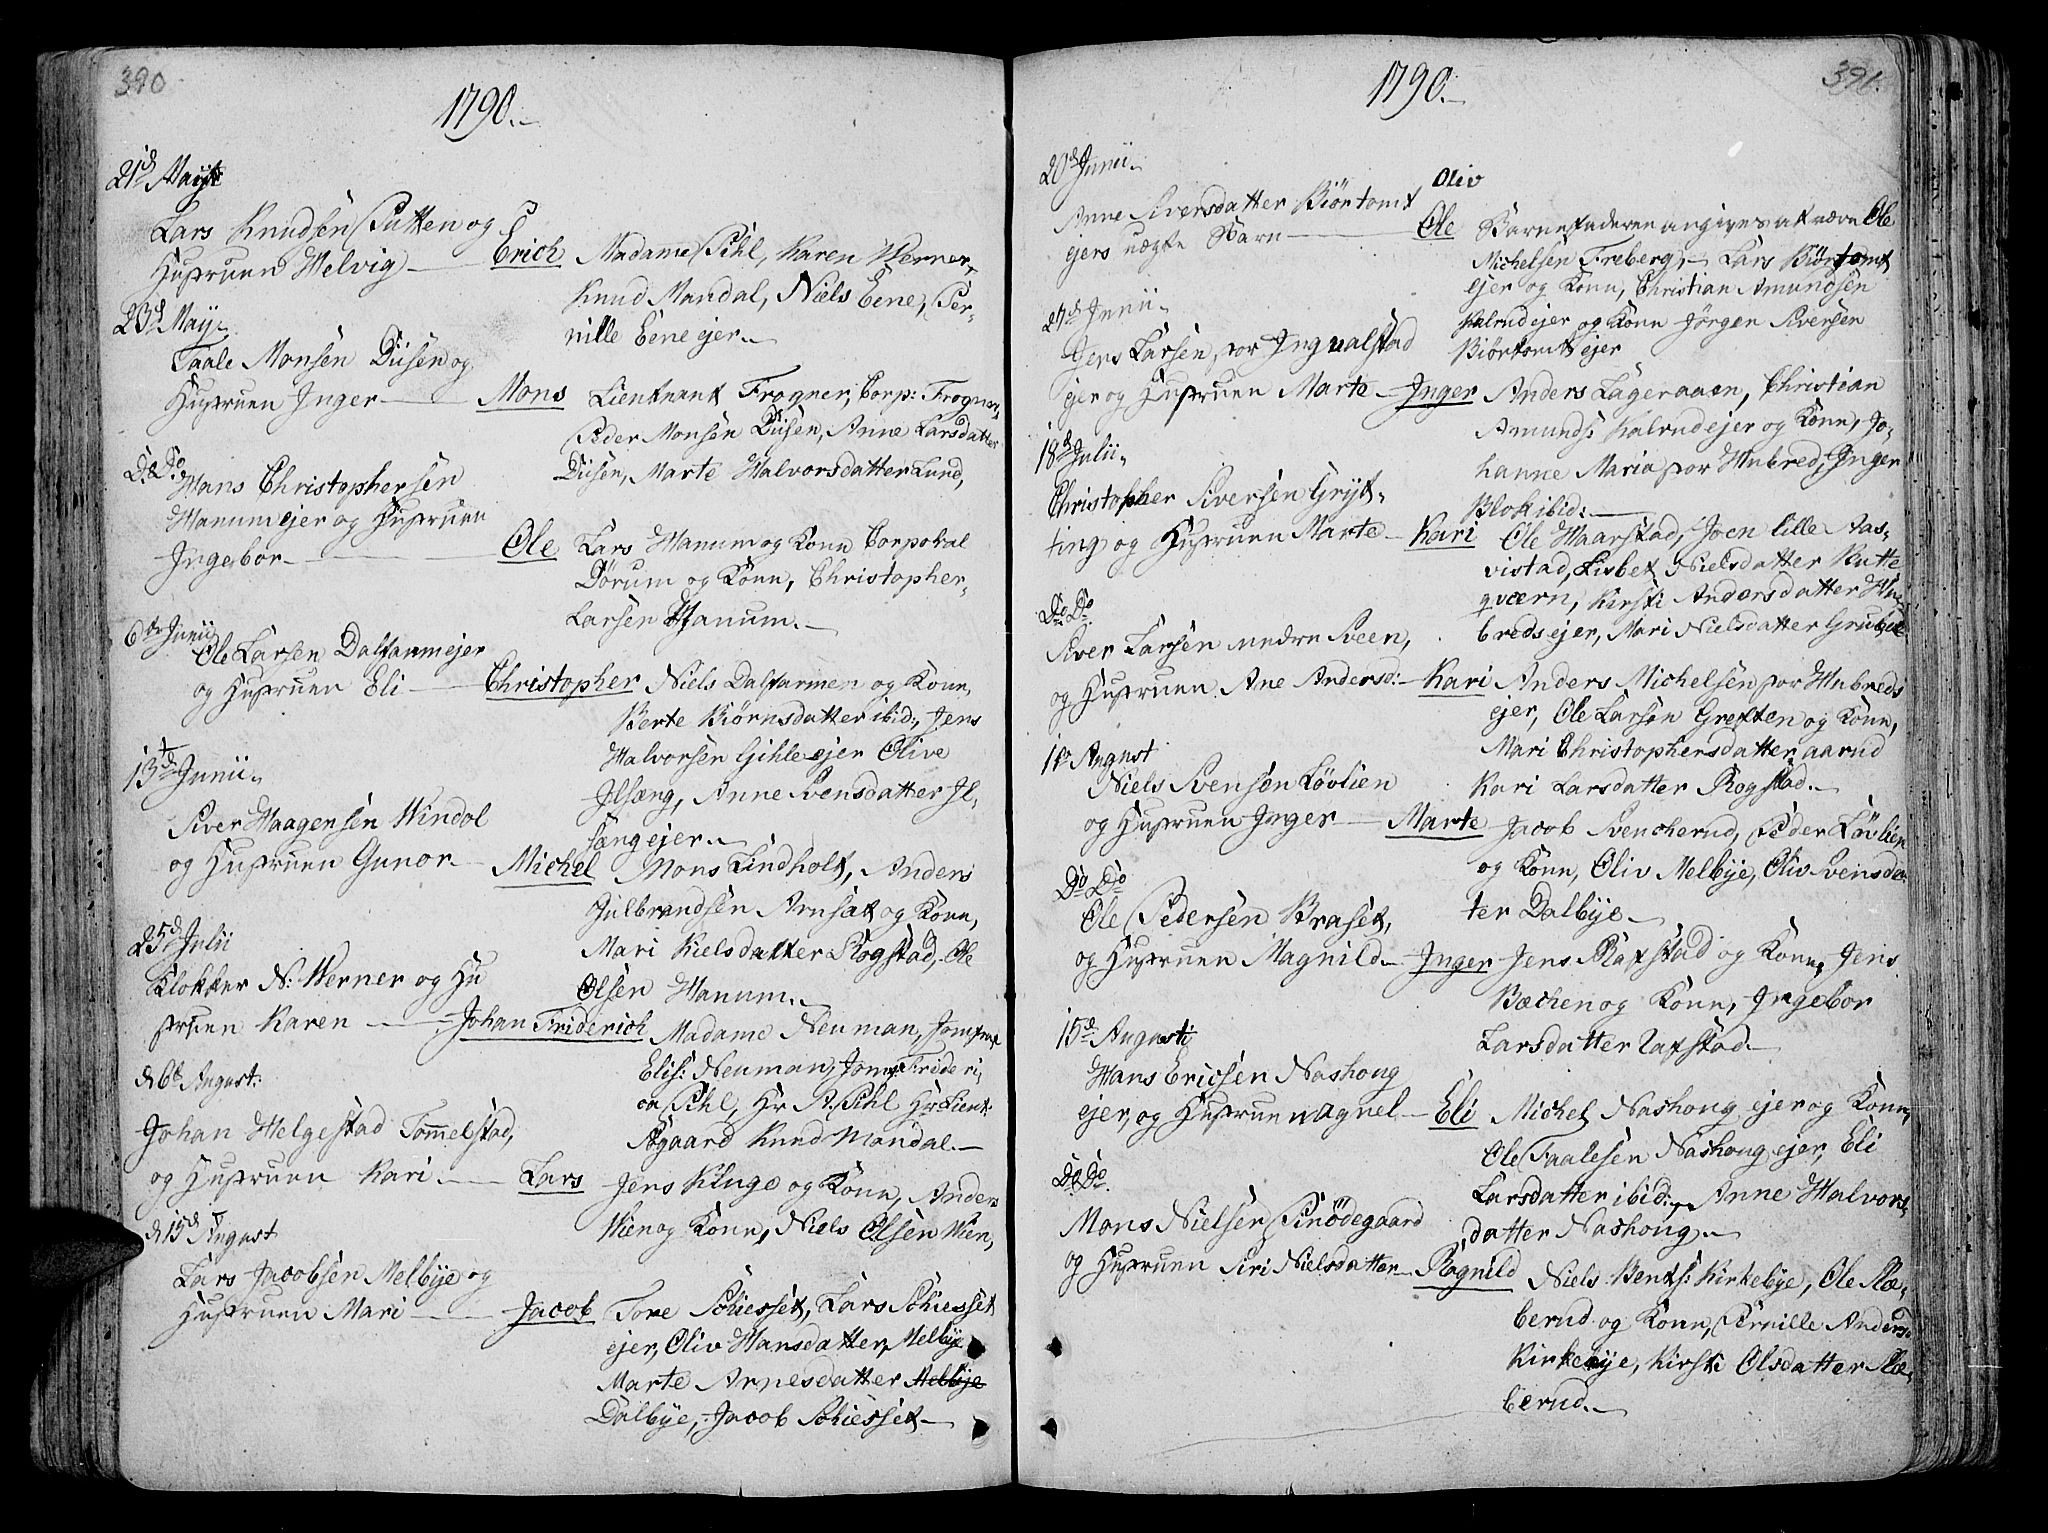 390
1790.
21d Maÿ
Lars Knudsen Sutten og
Hustruen Helvig — Erich Madame Pihl, Karen Werner,
Knud Mandal, Niels Eene, Per-
nille Eene ejer.
23d Maÿ
Taale Monsen Diisen og
Hustruen Inger — Mons Lieutnant Frogner, Corp: Frogner,
Peder Monsen Diisen, Anne Larsdatter
Diisen, Marte Halvorsdatter Lund,
Do Do
Hans Christophersen
Hanum ejer og Hustruen
Ingebor — Ole Lars Hanum og Konn Corporal
Dørum og Konn, Christopher
Larsen Hanum.
6te Junii
Ole Larsen Dalfarmejer
og Hustruen Eli — Christopher Niels Dalfarmen og Konn,
Berte Biørnsdatter ibid:, Jens
Halvorsen Gihle ejer Olive
Ilsæng, Anne Svensdatter Il-
sang ejer.
13de Junii
Siver Haagensen Windol
og Hustruen Gunor — Michel Mons Lindholt, Anders
Gulbrandsen Arnsæt og Konn,
Mari Kielsdatter Rogstad, Ole
Olsen Hanum.
25d Julii
Klokker N: Werner og Hu
struen Karen — Johan Friderich Madame Neuman, Jomfrue
Elis: Neuman, Jomf Frideri-
ca Pihl, Hr R. Pihl Hr Lieut:
Aagaard Knud Mandal.
d 6t August:
Johan Helgestad Tommelstad,
og Hustruen Kari — Lars Jens Kluge og Konn, Anders
Wien og Konn, Niels Olsen Wien,
d 15d August
Lars Jacobsen Melbÿe og
Hustruen Mari — Jacob Tore Schiesset, Lars Schiesset
ejer, Oliv Hansdatter Melbÿe
Marte Arnesdatter Melbÿe
Dalbÿe, Jacob Schiesset
391.
1790.
20d Junii
Oliv
Anne Siversdatter Biørtomt
ejers uægte Barn — Ole Barnefaderen angives at være Ole
Michelsen Freberg, Lars Biørtomt
ejer og Konn, Christian Amundsen
Kalrud ejer og Konn Jørgen Siversen
Biørtomt ejer
27d Junii
Jens Larsen por Ingvalstad
ejer og Hustruen Marte — Inger Anders Lageraaen, Christian
Amunds: Kalrud ejer og Konn, Jo-
hanne Maria por Hubred, Inger
Blok ibid:
18d Julii
Christopher Siversen Grÿt-
ting og Hustruen Marte — Kari Ole Haarstad, Joen lille Aas-
vistad, Lisbet Nielsdatter Kutte
qværn, Kirsti Andersdatter Hu-
breds ejer, Mari Nielsdatter Grubek
Do Do
Siver Larsen nedre Sveen,
og Hustruen Ane Andersd: — Kari Anders Michelsen por Hubreds
ejer, Ole Larsen Greften og Konn,
Mari Christophersdatter aarud
Kari Larsdatter Rogstad.
1te August
Niels Svensen Løvlien
og Hustruen Inger — Marte Jacob Svencherud, Peder Løvlien
og Konn, Oliv Melbÿe, Oliv Svensda-
ter Dalbÿe
Do Do
Ole Pedersen Braset,
og Hustruen Magnild — Inger Jens Rafstad og Konn, Jens
Bæchen og Konn, Ingebor
Larsdatter Rafstad
15d Augusti
Hans Ericsen Nashoug
ejer, og Hustruen agnel — Eli Michel Nashoug ejer og Konn,
Ole Taalesen Nashoug ejer, Eli
Larsdatter ibid:, Anne Halvors-
datter Nashoug
Do Do
Mons Nielsen Sinødegaard
og Hustruen Siri Nielsdatter — Ragnild Niels Bents: Kirkebÿe, Ole Ræ-
berud og Konn, Pernille Andersd
Kirkebÿe, Kirsti Olsdatter Ræ-
berud.